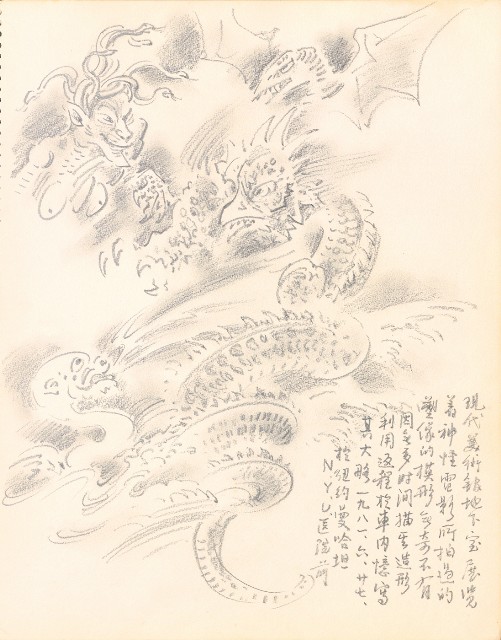 現代美術館地下室展覽
着神怪電影所拍過的
塑像的模形無奇不有
因無多時间描其造形
利用返程於車内憶寫
其大略一九八一、六、廿七、
於紐約曼哈坦
NYU医院前